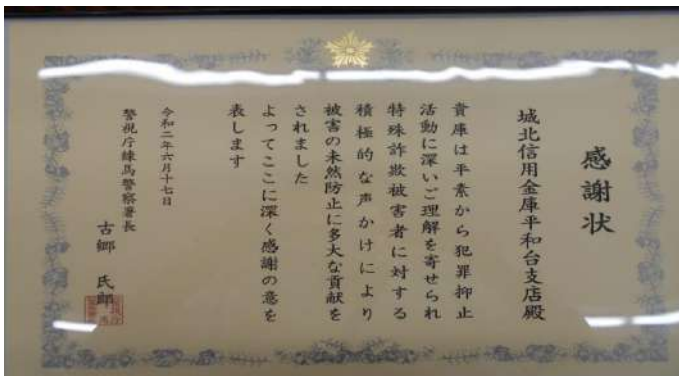 感謝状
城北信用金庫平和台支店殿
貴庫は平素から犯罪抑止
活動に深いご理解を寄せられ
特殊詐欺被害者に対する
積極的な声かけにより
被害の未然防止に多大な貢献を
されました
よってここに深く感謝の意を
表します
令和二年六月十七日
警視庁練馬警察署長
古郷 氏郎